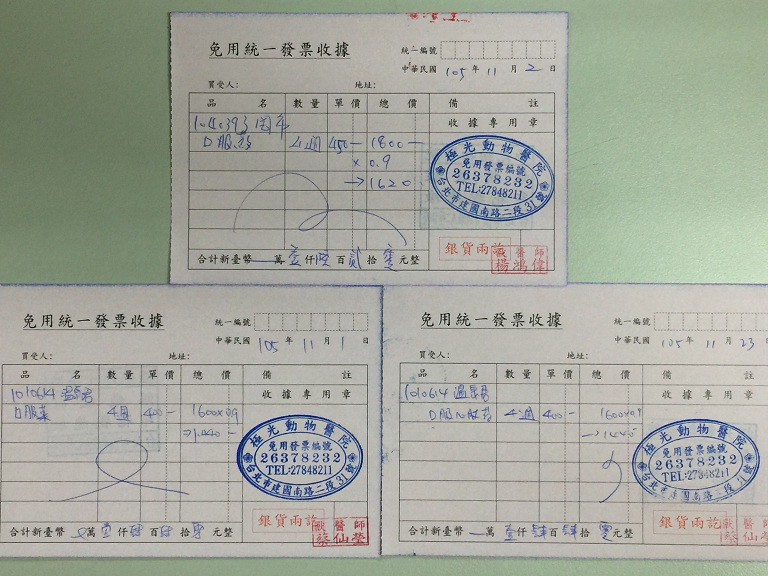 免用統一發票收據
統一編號
中華民國 105 年 11 月 2 日
買受人： 地址：
品名 數量 單價 總價 備註
1040393
收據專用章
口服藥 4週 450- 1800-
×0.9
→1620
極光動物醫院
免用發票編號
26378232
TEL:27848211
台北市建國南路二段31號
銀貨兩訖
獸醫師
楊鴻偉
合計新臺幣 萬壹仟陸百貳拾零元整
免用統一發票收據
統一編號
中華民國 105 年 11 月 1 日
買受人： 地址：
品名 數量 單價 總價 備註
1010614
收據專用章
口服藥 4週 400- 1600×0.9
→1440-
極光動物醫院
免用發票編號
26378232
TEL:27848211
台北市建國南路二段31號
銀貨兩訖
獸醫師
蔡仙瑩
合計新臺幣 萬壹仟肆百肆拾零元整
免用統一發票收據
統一編號
中華民國 105 年 11 月 23 日
買受人： 地址：
品名 數量 單價 總價 備註
1010614
收據專用章
口服心臟藥 4週 400- 1600×0.9
→1440
極光動物醫院
免用發票編號
26378232
TEL:27848211
台北市建國南路二段31號
銀貨兩訖
獸醫師
蔡仙瑩
合計新臺幣 萬壹仟肆百肆拾零元整